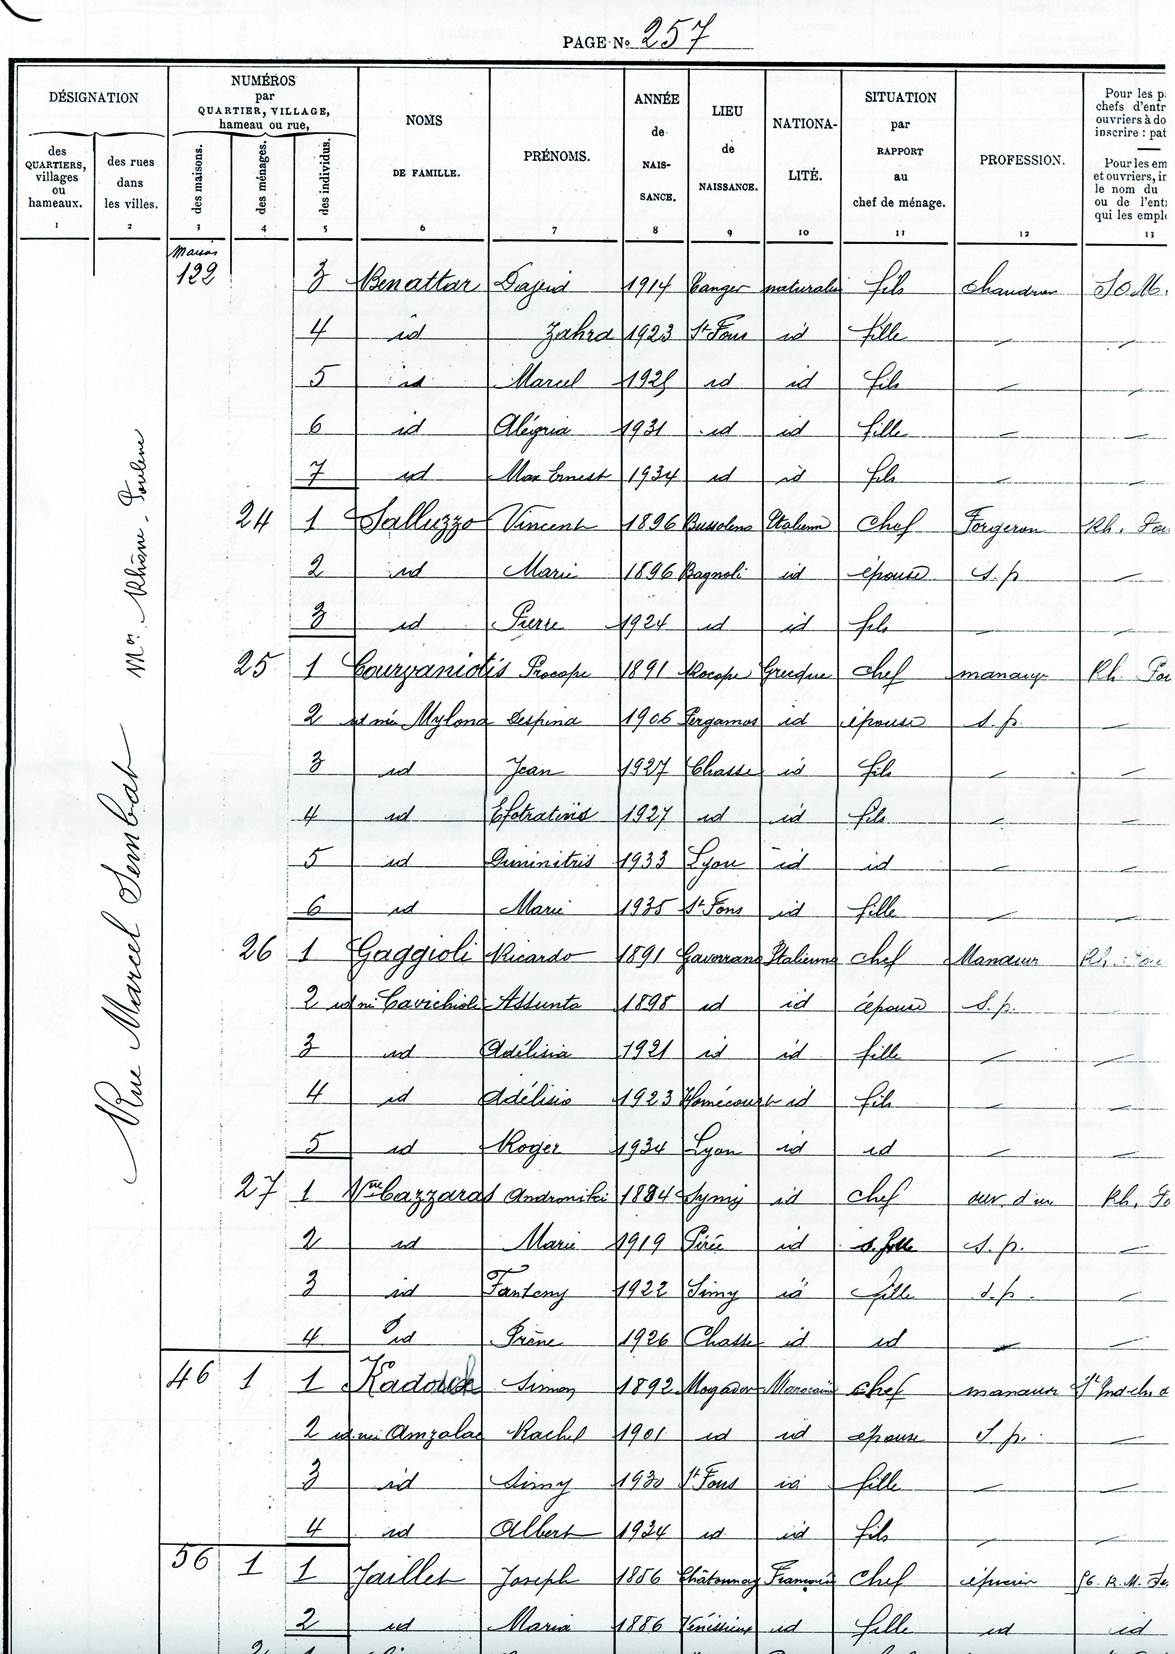 PAGE No 257
DÉSIGNATION
des QUARTIERS, villages ou hameaux.
des rues dans les villes.
NUMÉROS par QUARTIER, VILLAGE, hameau ou rue,
des maisons.
des ménages.
des individus.
NOMS DE FAMILLE.
PRÉNOMS.
ANNÉE de NAISSANCE.
LIEU de NAISSANCE.
NATIONALITÉ.
SITUATION par RAPPORT au chef de ménage.
PROFESSION.
Pour les p
chefs d'entr
ouvriers à do
inscrire : pat
Pour les em
et ouvriers, in
le nom du
ou de l'ent
qui les emplo
1 2 3 4 5 6 7 8 9 10 11 12 13
Rue Marcel Sembat Mon Rhône-Poulenc
Maison
122 3 Benattar 1914 Tanger naturalis fils chaudron
4 id Zahra 1923 St Fons id fille — —
5 id Marcel 1925 id id fils — —
6 id Alégria 1931 id id fille — —
7 id Max Ernest 1934 id id fils — —
24 1 Salluzzo Vincent 1896 Bussoleno Italienne chef Forgeron Rh. Pou
2 id Marie 1896 Bagnoli id épouse s.p —
3 id Pierre 1924 id id fils — —
25 1 Courvaniotis Procope 1891 Procope Grecque chef manœuv Rh. Pou
2 id née Mylona Despina 1906 Pergamos id épouse s.p. —
3 id Jean 1927 Chasse id fils — —
4 id 1927 id id fils — —
5 id Diminitris 1933 Lyon id id — —
6 id Marie 1935 St Fons id fille — —
26 1 Gaggioli Ricardo 1891 Gavorrano Italienne chef Manœuvr Rh. Pou
2 id née Cavichioli Assunta 1898 id id épouse s.p.
3 id Adélisia 1921 id id fille — —
4 id Adélisio 1923 Homécourt id fils — —
5 id Roger 1934 Lyon id id — —
27 1 Vve Cazzaras Androniki 1884 Symi id chef ouv. d'us Rh. Po
2 id Marie 1919 Pirée id s. fille s.p. —
3 id 1922 Simy id fille s.p. —
4 id Irène 1926 Chasse id id — —
46 1 1 Kadouch Simon 1892 Mogador Marocaine chef manœuvr
2 id née Amzalac Rachel 1901 id id épouse s.p. —
3 id Simy 1930 St Fons id fille — —
4 id Albert 1934 id id fils — —
56 1 1 Jaillet Joseph 1856 Châtonnay Française chef épicier 56. R. M. Se
2 id Maria 1886 Vénissieux id fille id id